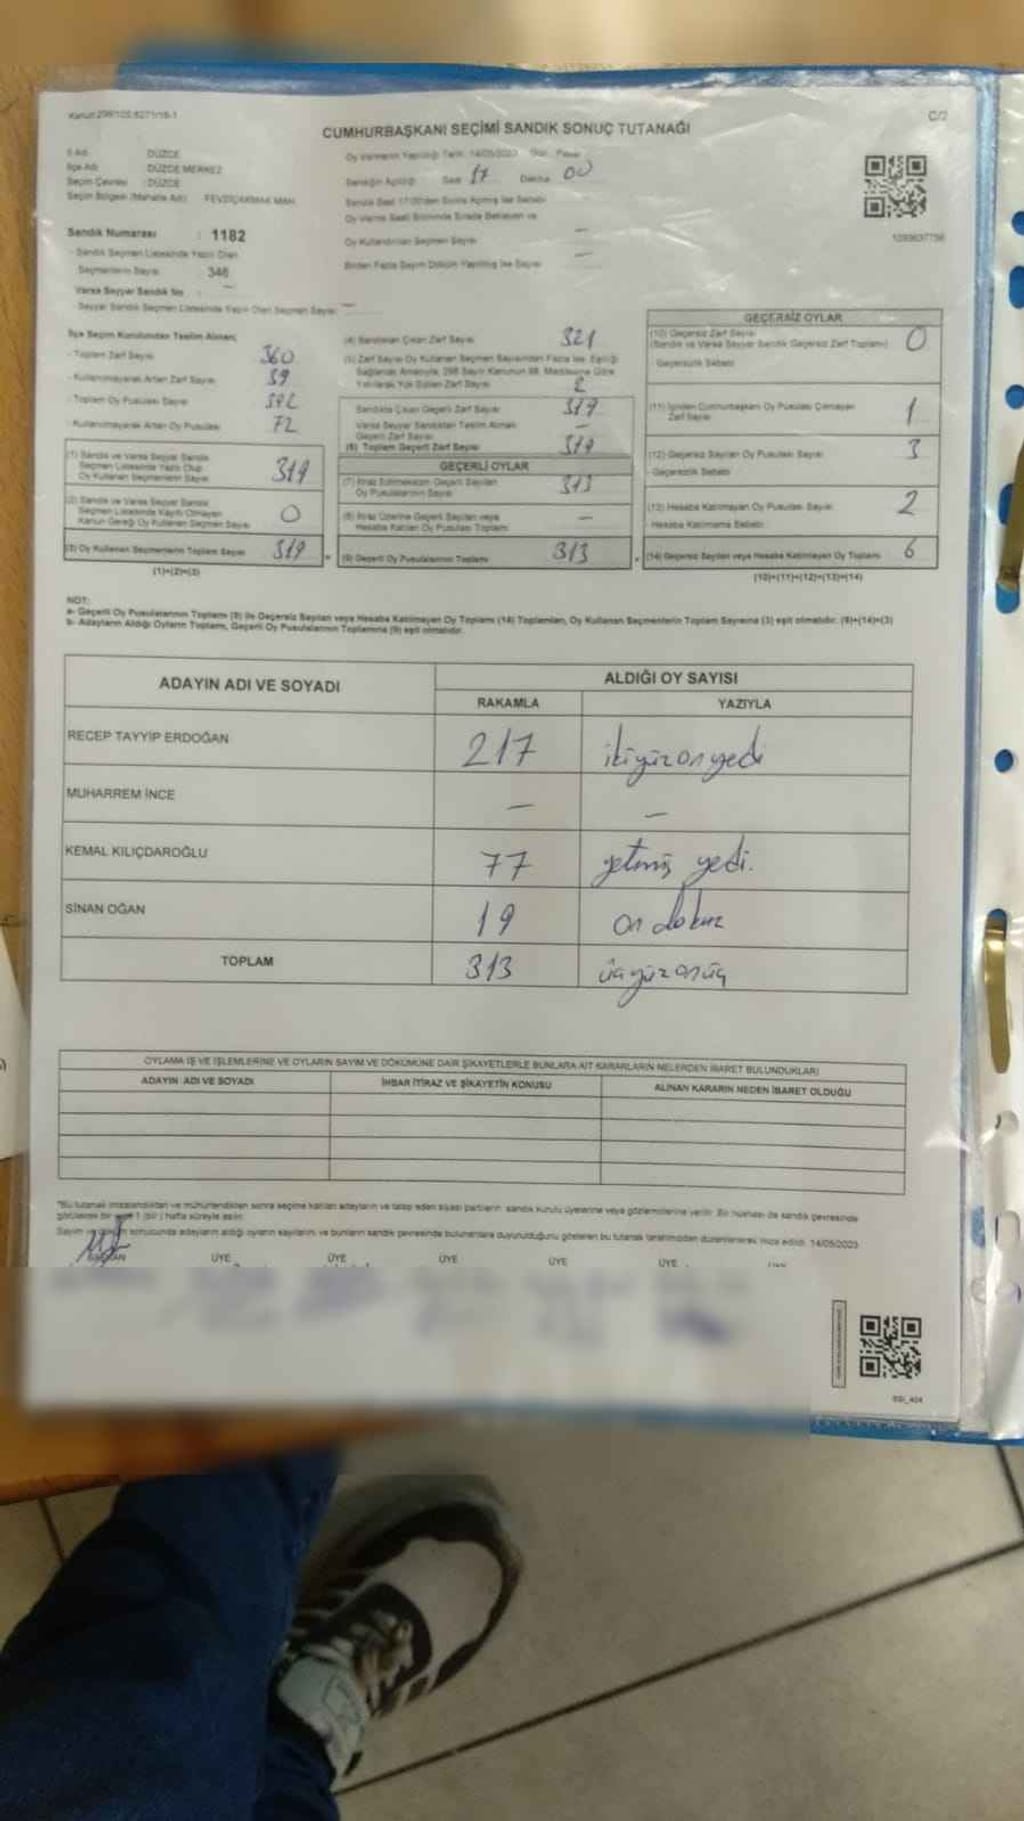 Kanun 298/103,6271/16-1
C/2
CUMHURBAŞKANI SEÇİMİ SANDIK SONUÇ TUTANAĞI
İl Adı : DÜZCE
İlçe Adı : DÜZCE MERKEZ
Seçim Çevresi : DÜZCE
Seçim Bölgesi (Mahalle Adı) : FEVZİÇAKMAK MAH.
Oy Vermenin Yapıldığı Tarih: 14/05/2023 Gün: Pazar
Sandığın Açıldığı Saat 17 Dakika 00
Sandık Saat 17:00'den Sonra Açılmış İse Sebebi
Oy Verme Saati Bitiminde Sırada Bekleyen ve
Oy Kullandırılan Seçmen Sayısı —
Birden Fazla Sayım Döküm Yapılmış İse Sayısı —
Sandık Numarası : 1182
- Sandık Seçmen Listesinde Yazılı Olan
Seçmenlerin Sayısı : 346
Varsa Seyyar Sandık No : —
- Seyyar Sandık Seçmen Listesinde Yazılı Olan Seçmen Sayısı : —
İlçe Seçim Kurulundan Teslim Alınan;
- Toplam Zarf Sayısı 360
- Kullanılmayarak Artan Zarf Sayısı 39
- Toplam Oy Pusulası Sayısı
- Kullanılmayarak Artan Oy Pusulası 72
(1) Sandık ve Varsa Seyyar Sandık Seçmen Listesinde Yazılı Olup Oy Kullanan Seçmenlerin Sayısı 319
(2) Sandık ve Varsa Seyyar Sandık Seçmen Listesinde Kayıtlı Olmayan Kanun Gereği Oy Kullanan Seçmen Sayısı 0
(3) Oy Kullanan Seçmenlerin Toplam Sayısı 319
(1)+(2)=(3)
(4) Sandıktan Çıkan Zarf Sayısı 321
(5) Zarf Sayısı Oy Kullanan Seçmen Sayısından Fazla İse, Eşitliği
Sağlamak Amacıyla, 298 Sayılı Kanunun 98. Maddesine Göre
Yakılarak Yok Edilen Zarf Sayısı 2
Sandıkta Çıkan Geçerli Zarf Sayısı 319
Varsa Seyyar Sandıktan Teslim Alınan Geçerli Zarf Sayısı —
(6) Toplam Geçerli Zarf Sayısı 319
GEÇERLİ OYLAR
(7) İtiraz Edilmeksizin Geçerli Sayılan Oy Pusulalarının Sayısı 313
(8) İtiraz Üzerine Geçerli Sayılan veya Hesaba Katılan Oy Pusulası Toplamı —
(9) Geçerli Oy Pusulalarının Toplamı 313
GEÇERSİZ OYLAR
(10) Geçersiz Zarf Sayısı 0
(Sandık ve Varsa Seyyar Sandık Geçersiz Zarf Toplamı)
Geçersizlik Sebebi
(11) İçinden Cumhurbaşkanı Oy Pusulası Çıkmayan Zarf Sayısı 1
(12) Geçersiz Sayılan Oy Pusulası Sayısı 3
Geçersizlik Sebebi
(13) Hesaba Katılmayan Oy Pusulası Sayısı 2
Hesaba Katılmama Sebebi
(14) Geçersiz Sayılan veya Hesaba Katılmayan Oy Toplamı 6
(10)+(11)+(12)+(13)=(14)
NOT:
a- Geçerli Oy Pusulalarının Toplamı (9) ile Geçersiz Sayılan veya Hesaba Katılmayan Oy Toplamı (14) Toplamları, Oy Kullanan Seçmenlerin Toplam Sayısına (3) eşit olmalıdır. (9)+(14)=(3)
b- Adayların Aldığı Oyların Toplamı, Geçerli Oy Pusulalarının Toplamına (9) eşit olmalıdır.
ADAYIN ADI VE SOYADI
ALDIĞI OY SAYISI
RAKAMLA YAZIYLA
RECEP TAYYİP ERDOĞAN 217 ikiyüzonyedi
MUHARREM İNCE — —
KEMAL KILIÇDAROĞLU 77 yetmiş yedi.
SİNAN OĞAN 19 on dokuz
TOPLAM 313 üçyüzonüç
OYLAMA İŞ VE İŞLEMLERİNE VE OYLARIN SAYIM VE DÖKÜMÜNE DAİR ŞİKAYETLERLE BUNLARA AİT KARARLARIN NELERDEN İBARET BULUNDUKLARI
ADAYIN ADI VE SOYADI İHBAR İTİRAZ VE ŞİKAYETİN KONUSU ALINAN KARARIN NEDEN İBARET OLDUĞU
*Bu tutanak imzalandıktan ve mühürlendikten sonra seçime katılan adayların ve talep eden siyasi partilerin sandık kurulu üyelerine veya gözlemcilerine verilir. Bir nüshası da sandık çevresinde
görülecek bir yere 1 (bir) hafta süreyle asılır.
Sayım ve döküm sonucunda adayların aldığı oyların sayılarını ve bunların sandık çevresinde bulunanlara duyurulduğunu gösteren bu tutanak tarafımızdan düzenlenerek imza edildi. 14/05/2023
BAŞKAN ÜYE ÜYE ÜYE ÜYE ÜYE